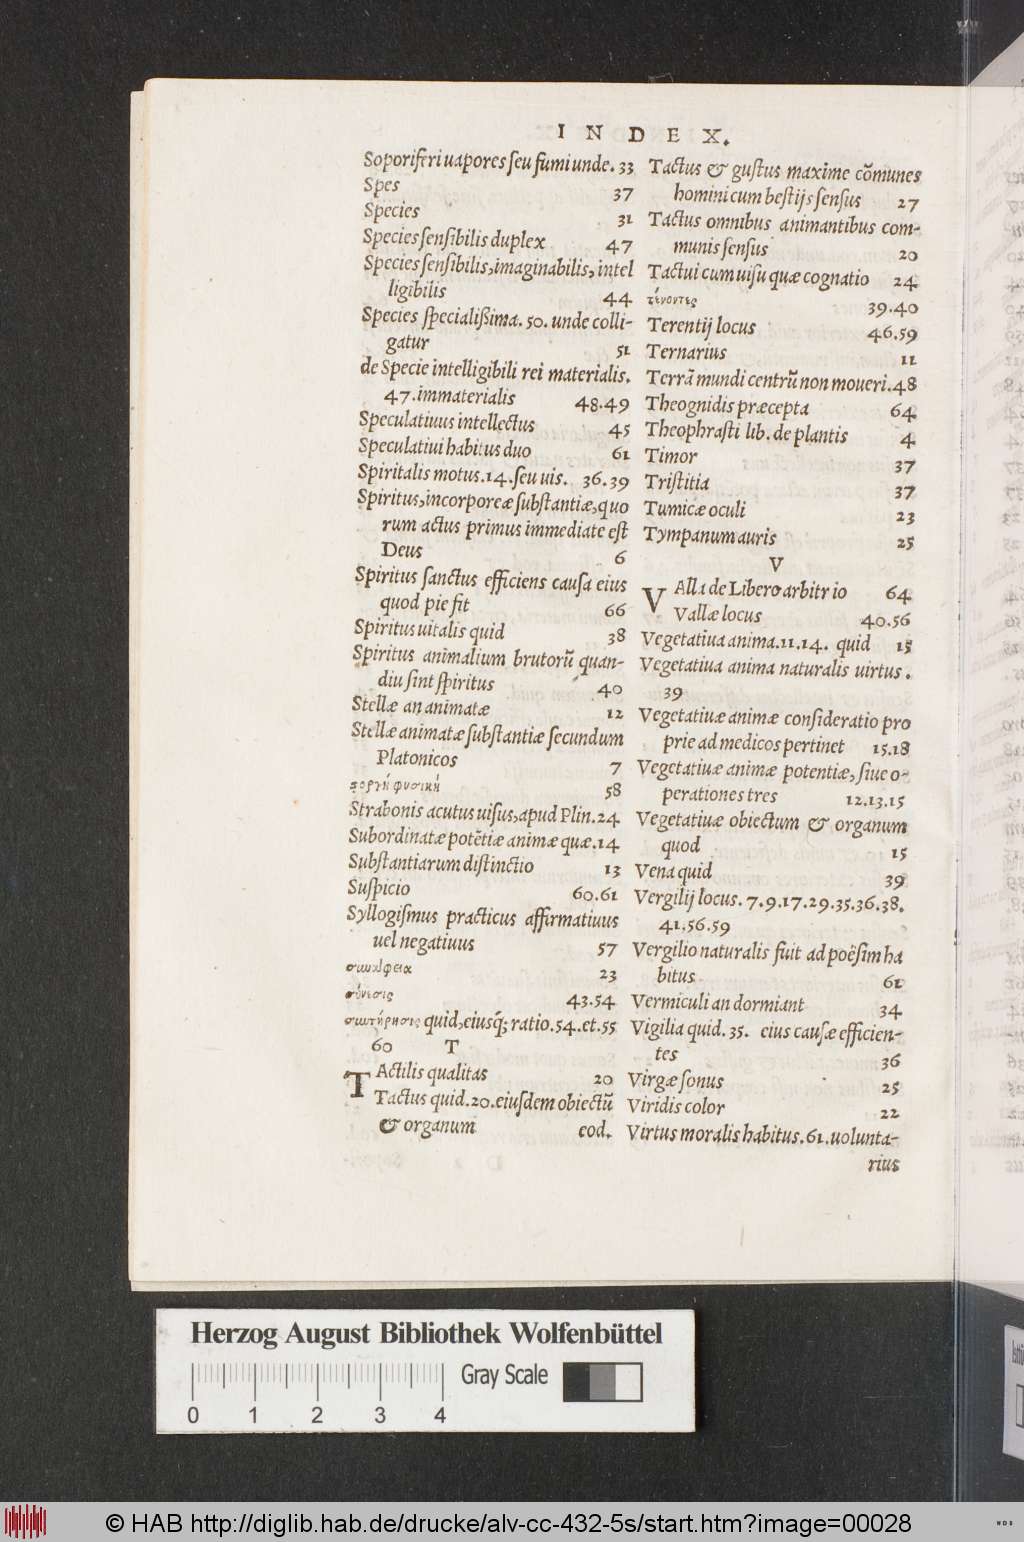 INDEX.
Soporiferi uapores seu fumi unde. 33
Spes 37
Species 31
Species sensibilis duplex 47
Species sensibilis, imaginabilis, intel
ligibilis 44
Species specialißima. 50. unde colli-
gatur 51
de Specie intelligibili rei materialis.
47. immaterialis 48.49
Speculatiuus intellectus 45
Speculatiui habitus duo 61
Spiritalis motus. 14. seu uis. 36.39
Spiritus, incorporeæ substantiæ, quo
rum actus primus immediate est
Deus 6
Spiritus sanctus efficiens causa eius
quod pie fit 66
Spiritus uitalis quid 38
Spiritus animalium brutorũ quan-
diu sint spiritus 40
Stellæ an animatæ 12
Stellæ animatæ substantiæ secundum
Platonicos 7
ϛοργὴ φυσικὴ 58
Strabonis acutus uisus, apud Plin. 24
Subordinatæ potẽtiæ animæ quæ. 14
Substantiarum distinctio 13
Suspicio 60.61
Syllogismus practicus affirmatiuus
uel negatiuus 57
23
σύνεσις 43.54
συντήρησις quid, eiusq́; ratio. 54. et. 55
60
T
TActilis qualitas 20
Tactus quid. 20. eiusdem obiectũ
& organum eod.
Tactus & gustus maxime cõmunes
homini cum bestijs sensus 27
Tactus omnibus animantibus com-
munis sensus 20
Tactui cum uisu quæ cognatio 24
τένοντες 39.40
Terentij locus 46.59
Ternarius 11
Terrã mundi centrũ non moueri. 48
Theognidis præcepta 64
Theophrasti lib. de plantis 4
Timor 37
Tristitia 37
Tunicæ oculi 23
Tympanum auris 25
V
VAlla de Libero arbitrio 64
Vallæ locus 40.56
Vegetatiua anima. 11.14. quid 15
Vegetatiua anima naturalis uirtus.
39
Vegetatiuæ animæ consideratio pro
prie ad medicos pertinet 15.18
Vegetatiuæ animæ potentiæ, siue o-
perationes tres 12.13.15
Vegetatiuæ obiectum & organum
quod 15
Vena quid 39
Vergilij locus. 7.9.17.29.35.36.38.
41.56.59
Vergilio naturalis fuit ad poësim ha
bitus 61
Vermiculi an dormiant 34
Vigilia quid. 35. eius causæ efficien-
tes 36
Virgæ sonus 25
Viridis color 22
Virtus moralis habitus. 61. uolunta-
rius
Herzog August Bibliothek Wolfenbüttel
0 1 2 3 4
Gray Scale
© HAB http://diglib.hab.de/drucke/alv-cc-432-5s/start.htm?image=00028